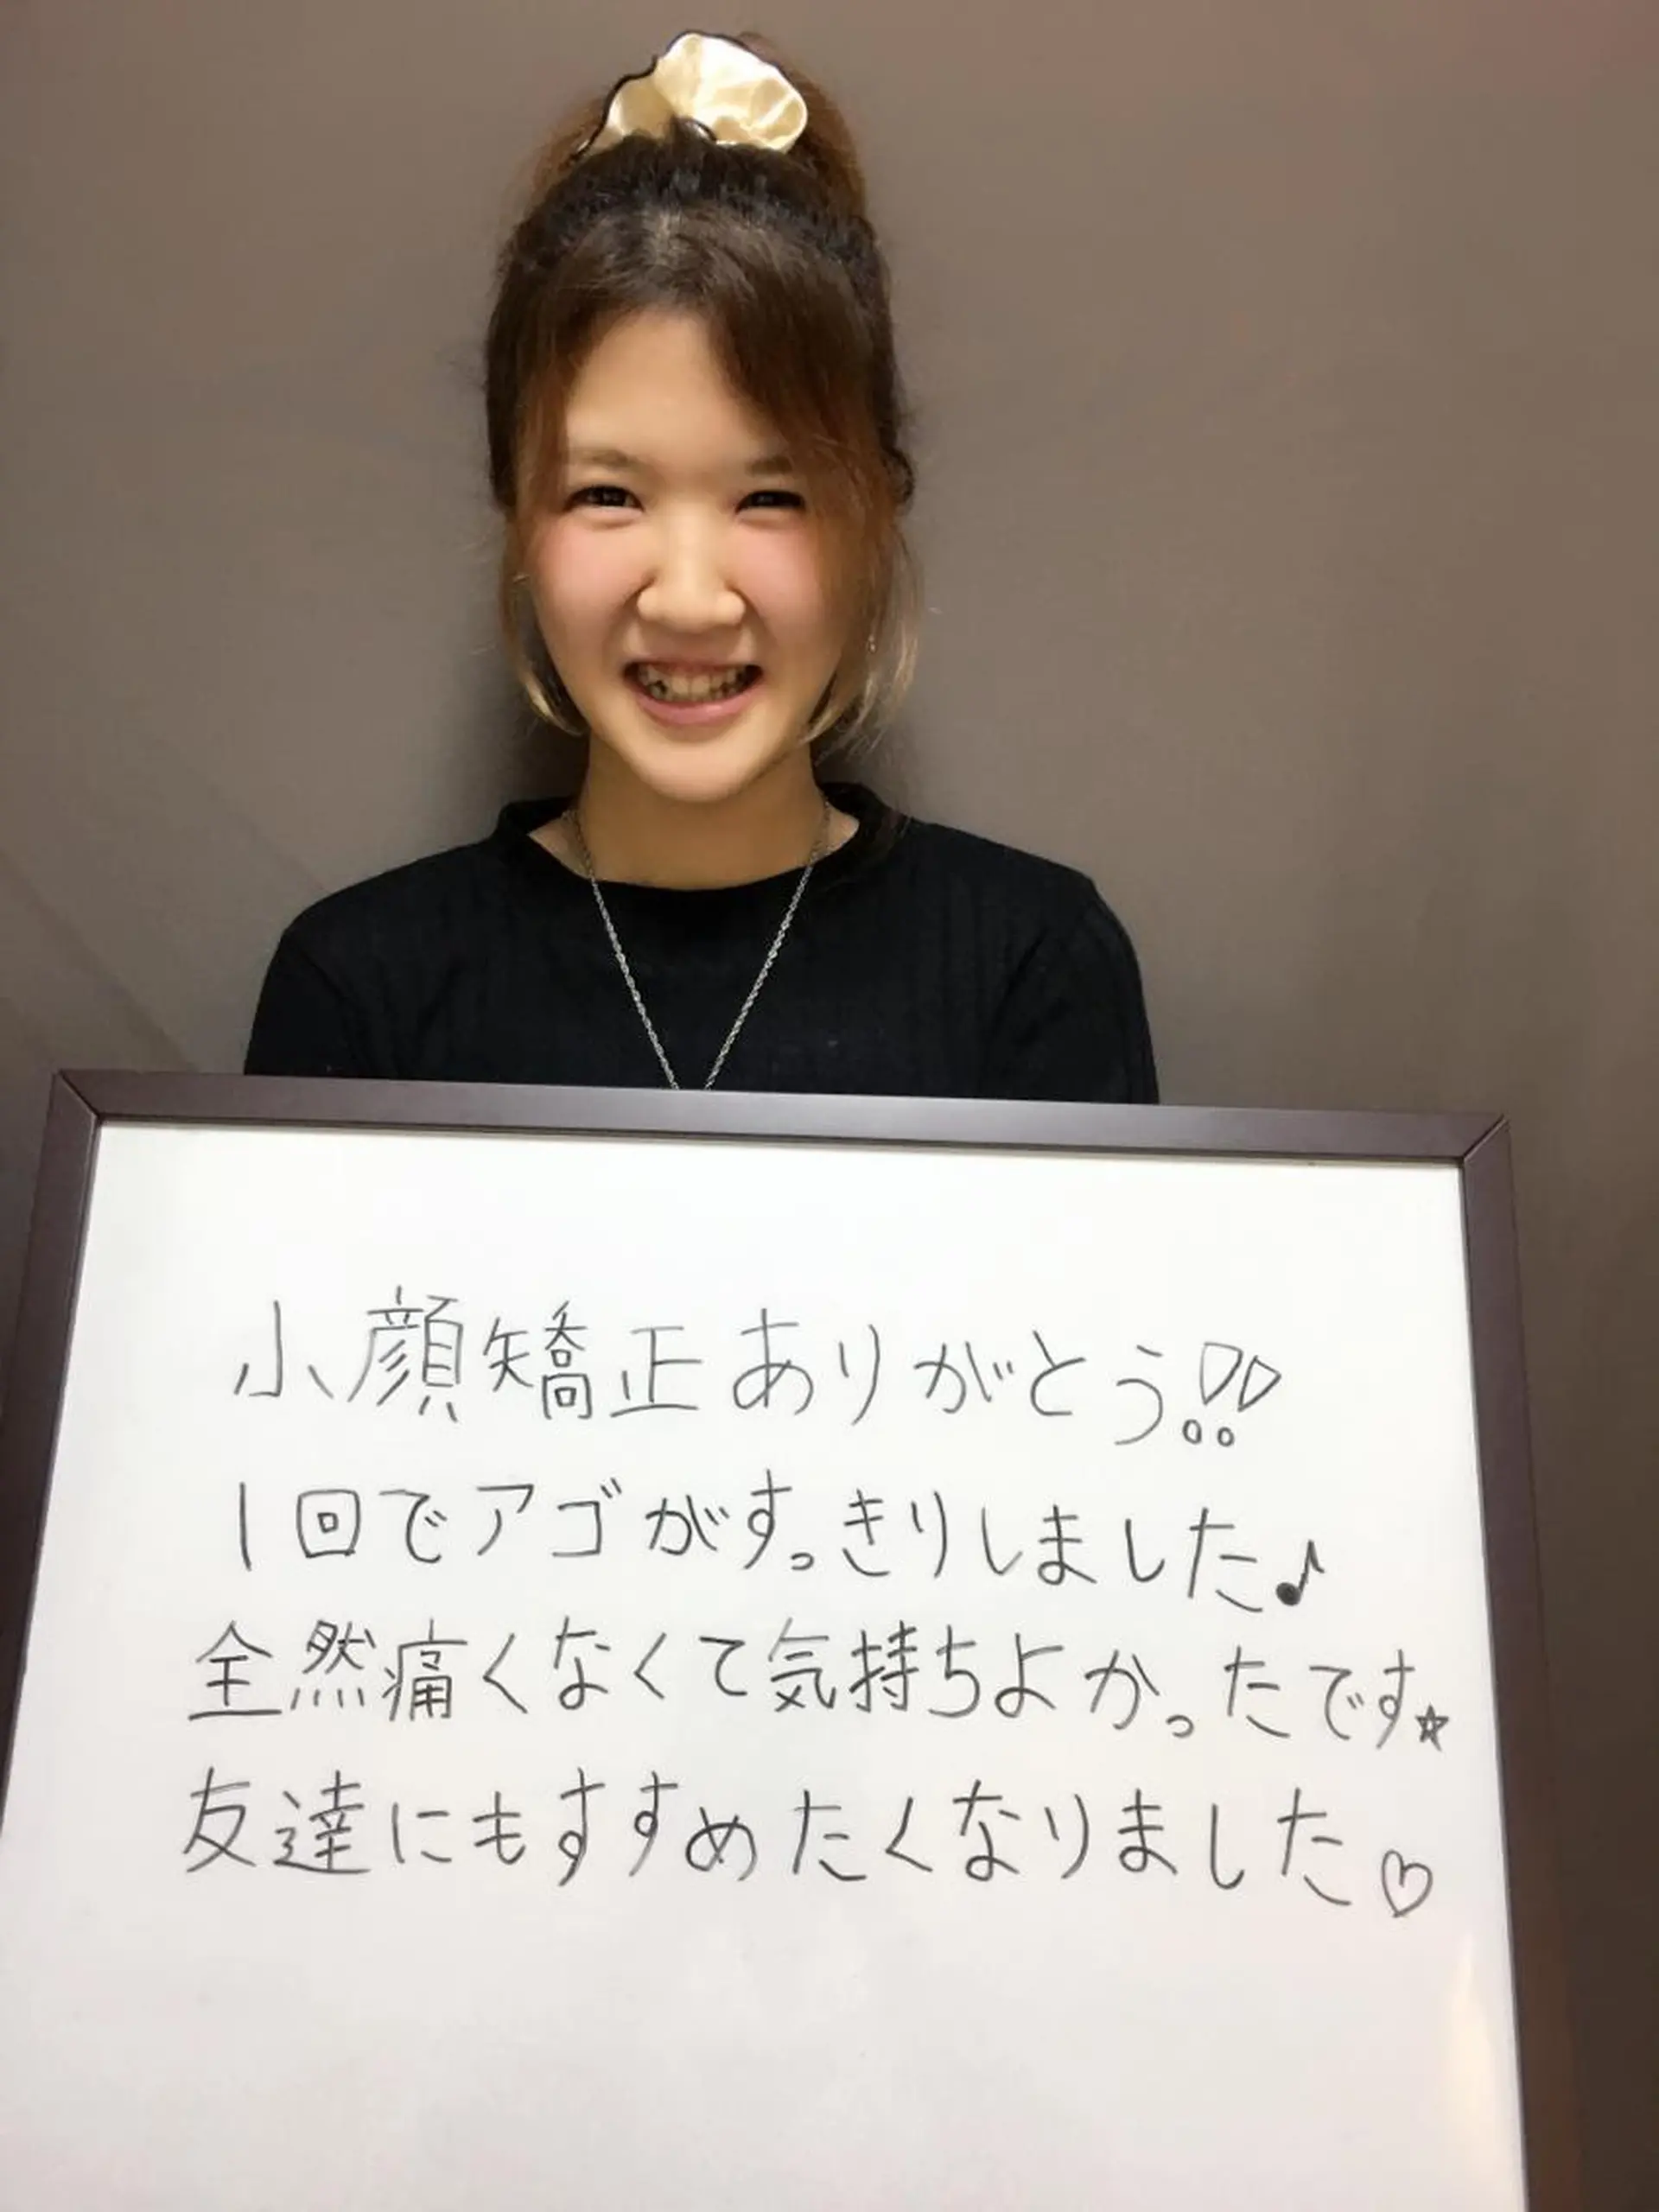 小顔矯正ありがとう!!
1回でアゴがすっきりしました♪
全然痛くなくて気持ちよかったです☆
友達にもすすめたくなりました♡